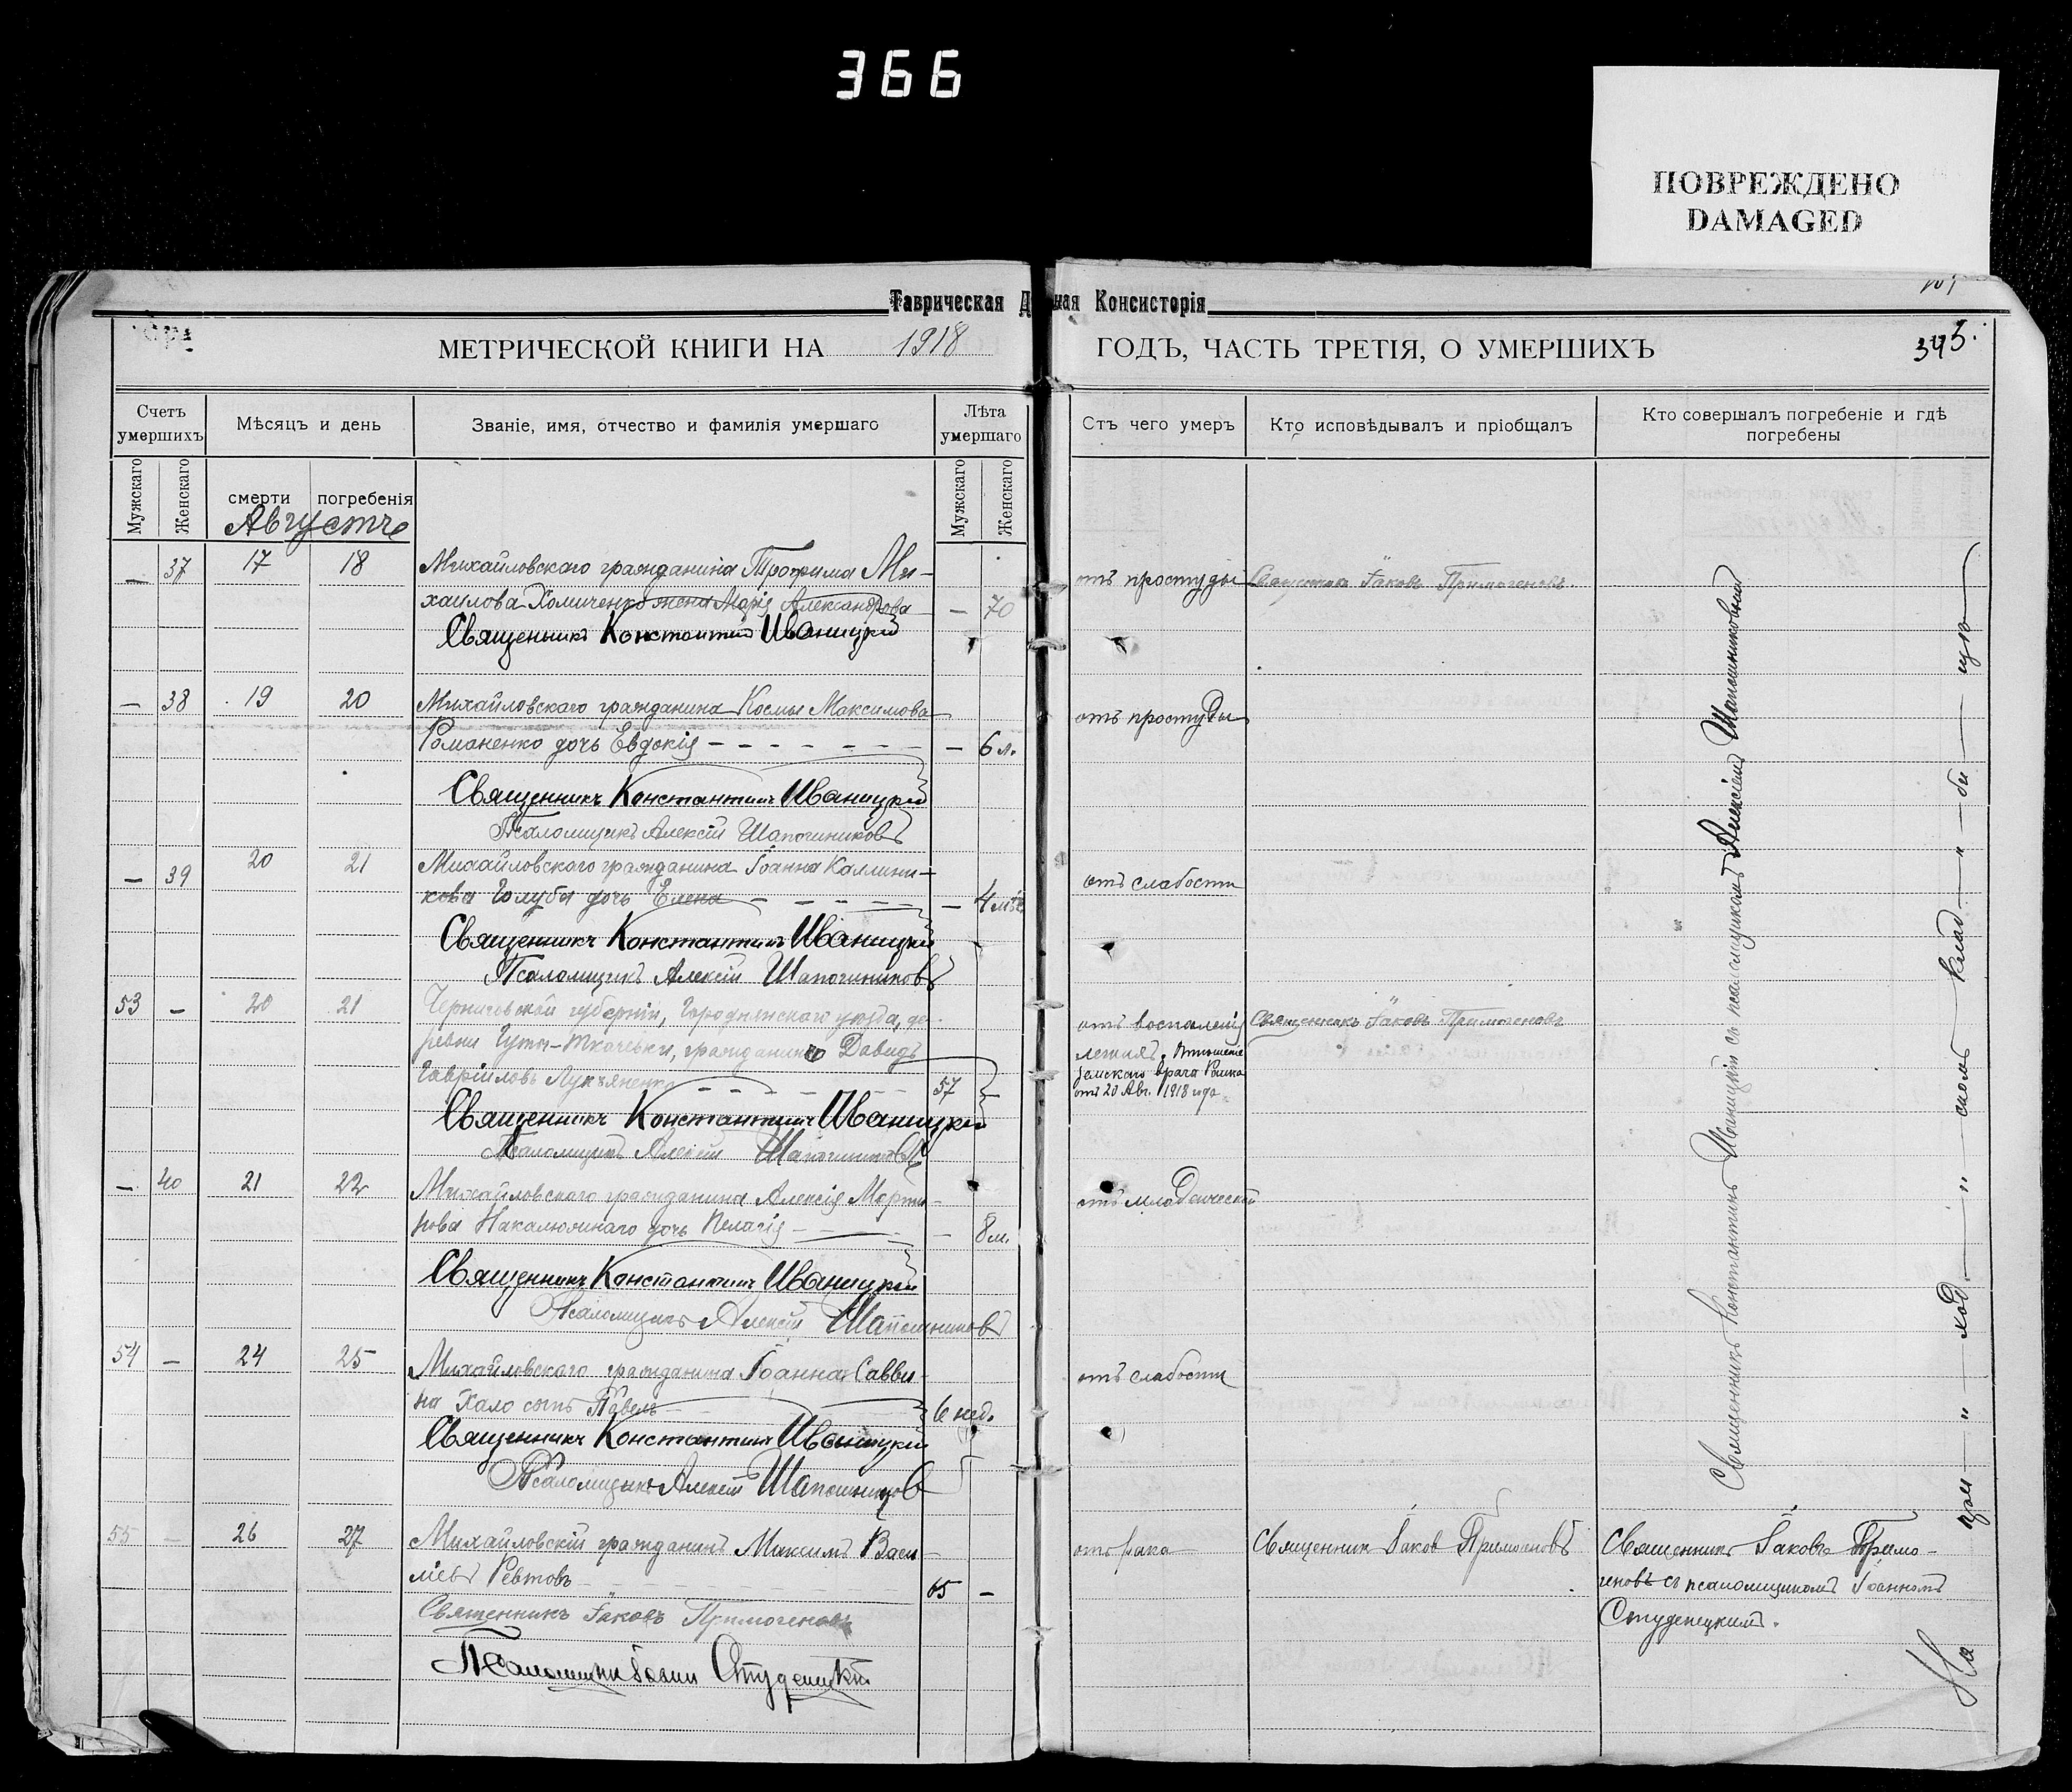 366
ПОВРЕЖДЕНО
DAMAGED
Таврическая Д ная Консисторія
МЕТРИЧЕСКОЙ КНИГИ НА 1918 ГОДЪ, ЧАСТЬ ТРЕТІЯ, О УМЕРШИХЪ
345.
Счетъ умершихъ
Мѣсяцъ и день
Званіе, имя, отчество и фамилія умершаго
Лѣта умершаго
Стъ чего умеръ
Кто исповѣдывалъ и пріобщалъ
Кто совершалъ погребеніе и гдѣ погребены
Мужскаго
Женскаго
смерти
погребенія
Мужскаго
Женскаго
Августъ
— 37 17 18 Михайловскаго гражданина Трофима Ми-
хаилова Хомиченко жена Марія Александрова — 70
отъ простуды Священникъ Іаковъ Примогеновъ.
Священникъ Константинъ Иваницкій
— 38 19 20 Михайловскаго гражданина Космы Максимова
Романенко дочь Евдокія — 6 л.
отъ простуды
Священникъ Константинъ Иваницкій
Псаломщикъ Алексій Шапошниковъ
— 39 20 21 Михайловскаго гражданина Іоанна Каллини-
кова Голуба дочь Елена — 4 мѣс
отъ слабости
Священникъ Константинъ Иваницкій
Псаломщикъ Алексій Шапошниковъ
53 — 20 21 Черниговской губерніи, Городнянскаго уѣзда, де-
ревни Гуты-Ткачевки, гражданинъ Давидъ
Гавріиловъ Лукъяненко 57 —
отъ воспаленія
легкихъ. Отношеніе
земскаго врача
отъ 20 Авг. 1918 года.
Священникъ Іаковъ Примогеновъ
Священникъ Константинъ Иваницкій
Псаломщикъ Алексій Шапошниковъ
— 40 21 22 Михайловскаго гражданина Алексія Марти-
нова Накалюжнаго дочь Пелагія — 8 м.
отъ младенческой
Священникъ Константинъ Иваницкій
Псаломщикъ Алексій Шапошниковъ
54 — 24 25 Михайловскаго гражданина Іоанна Савви-
на Хало сынъ Павелъ 6 нед.
отъ слабости
Священникъ Константинъ Иваницкій
Псаломщикъ Алексій Шапошников
55 — 26 27 Михайловскій гражданинъ Максимъ Васи-
ліевъ Ревтовъ 65 —
отъ рака
Священник Іаков Примогеновъ
Священникъ Іаковъ Примо-
геновъ съ псаломщикомъ Іоанномъ
Студенецкимъ.
Священникъ Іаковъ Примогеновъ
Псаломщикъ Іоаннъ Студенецкій
Священникъ Константинъ Иваницкій съ псаломщикомъ Алексіемъ Шапошниковымъ
На при — " — ход. — " — скомъ — клад — " — би — щѣ —